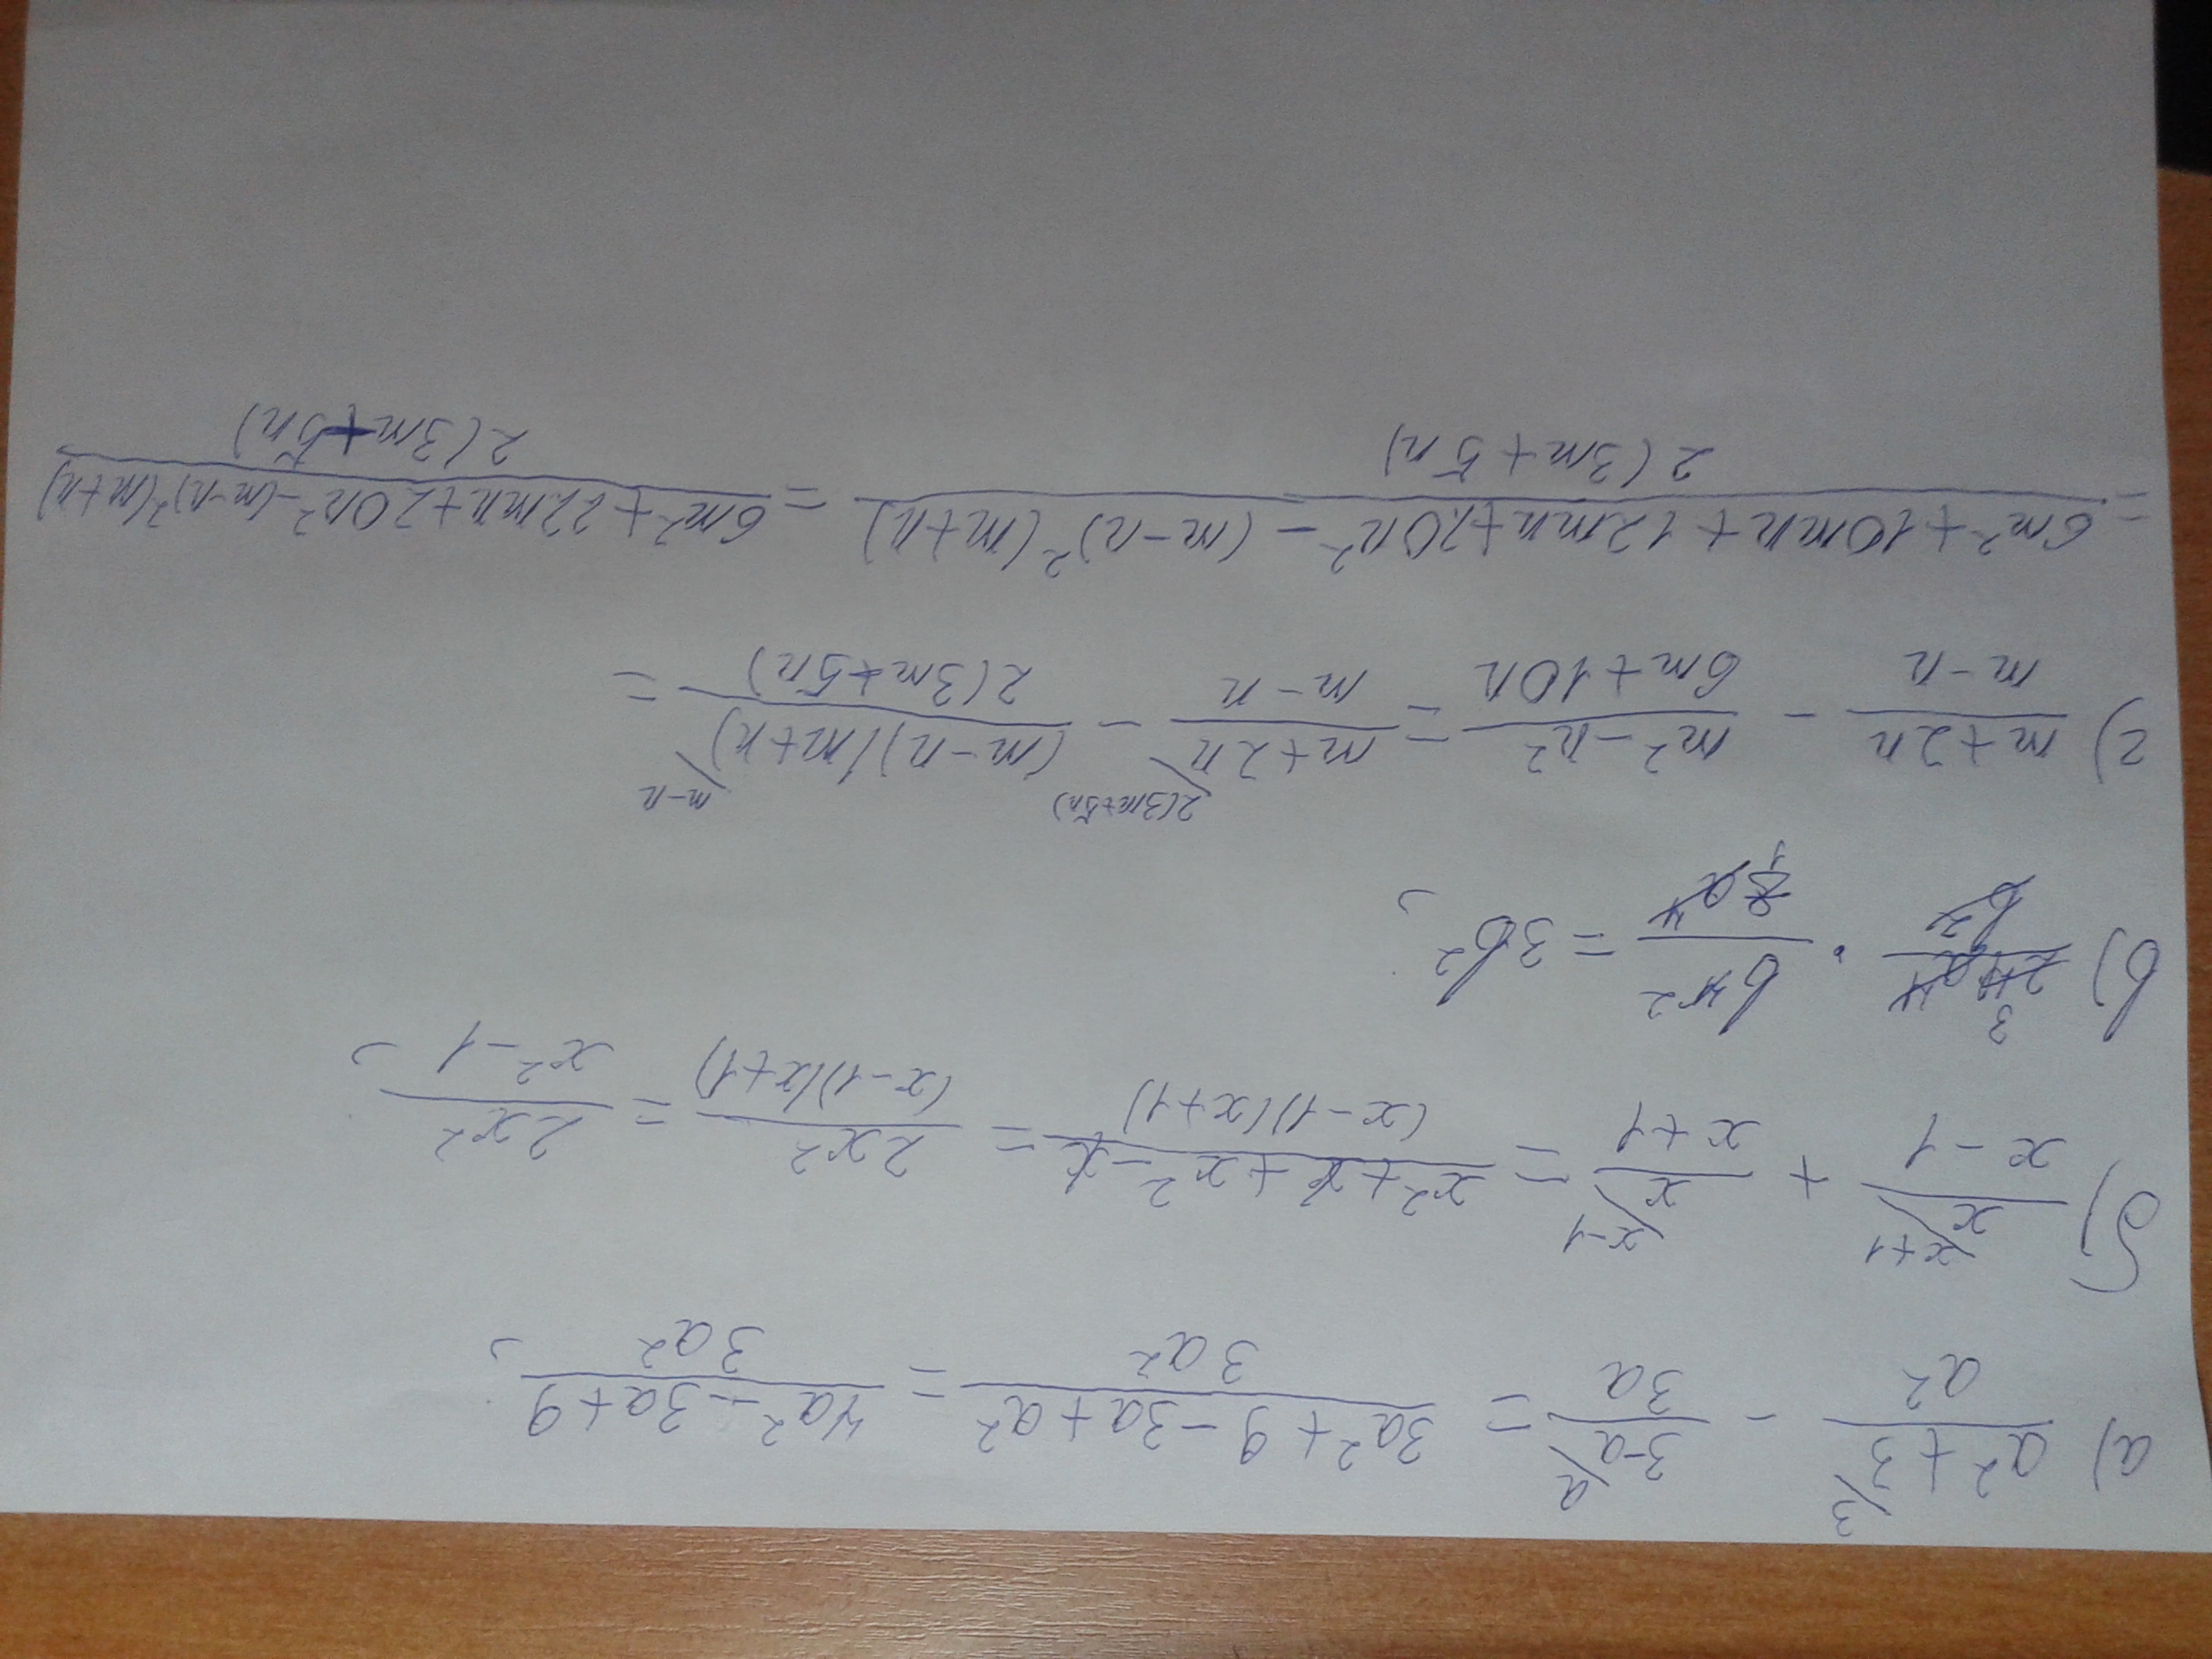 а) (a²+3)/a² \3 − (3−a)/3a \a = (3a²+9−3a+a²)/3a² = (4a²−3a+9)/3a²;
б) x/(x−1) \x+1 + x/(x+1) \x−1 = (x²+x+x²−x)/((x−1)(x+1)) = 2x²/((x−1)(x+1)) = 2x²/(x²−1);
в) 24a⁴/b² · b⁴/8a⁴ = 3b²;
г) (m+2n)/(m−n) − (m²−n²)/(6m+10n) = (m+2n)/(m−n) \2(3m+5n) − (m−n)(m+n)/(2(3m+5n)) \m−n =
= (6m²+10mn+12mn+20n²−(m−n)²(m+n))/(2(3m+5n)) = (6m²+22mn+20n²−(m−n)²(m+n))/(2(3m+5n))